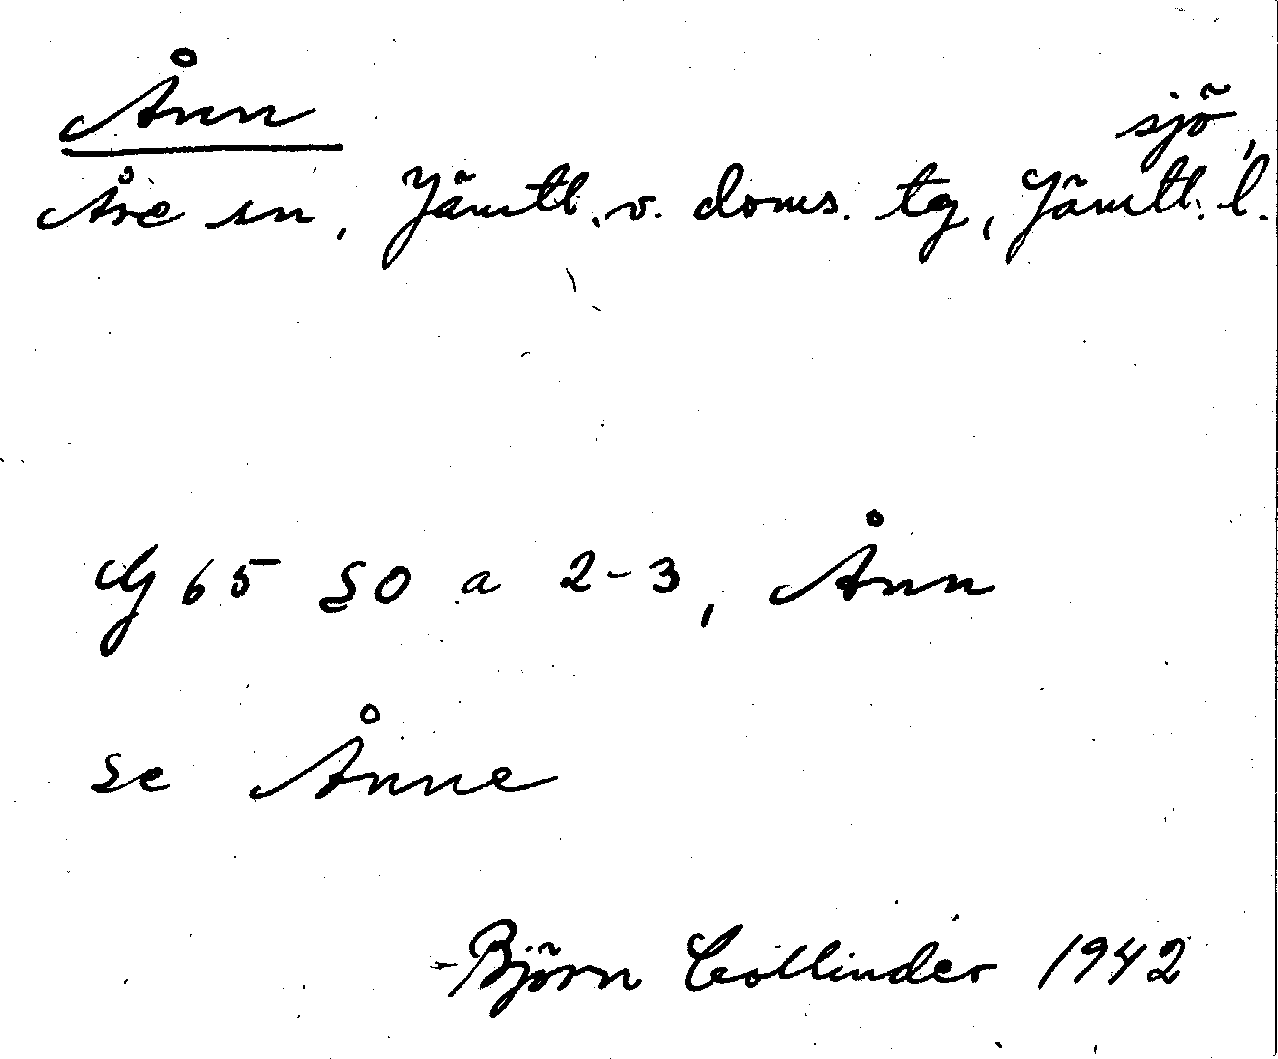 Ånn
sjö,
Åre sn, Jämtl. v. doms. tg, Jämtl. l.
Gg 65 SO a 2-3, Ånn
se Ånne
Björn Collinder 1942